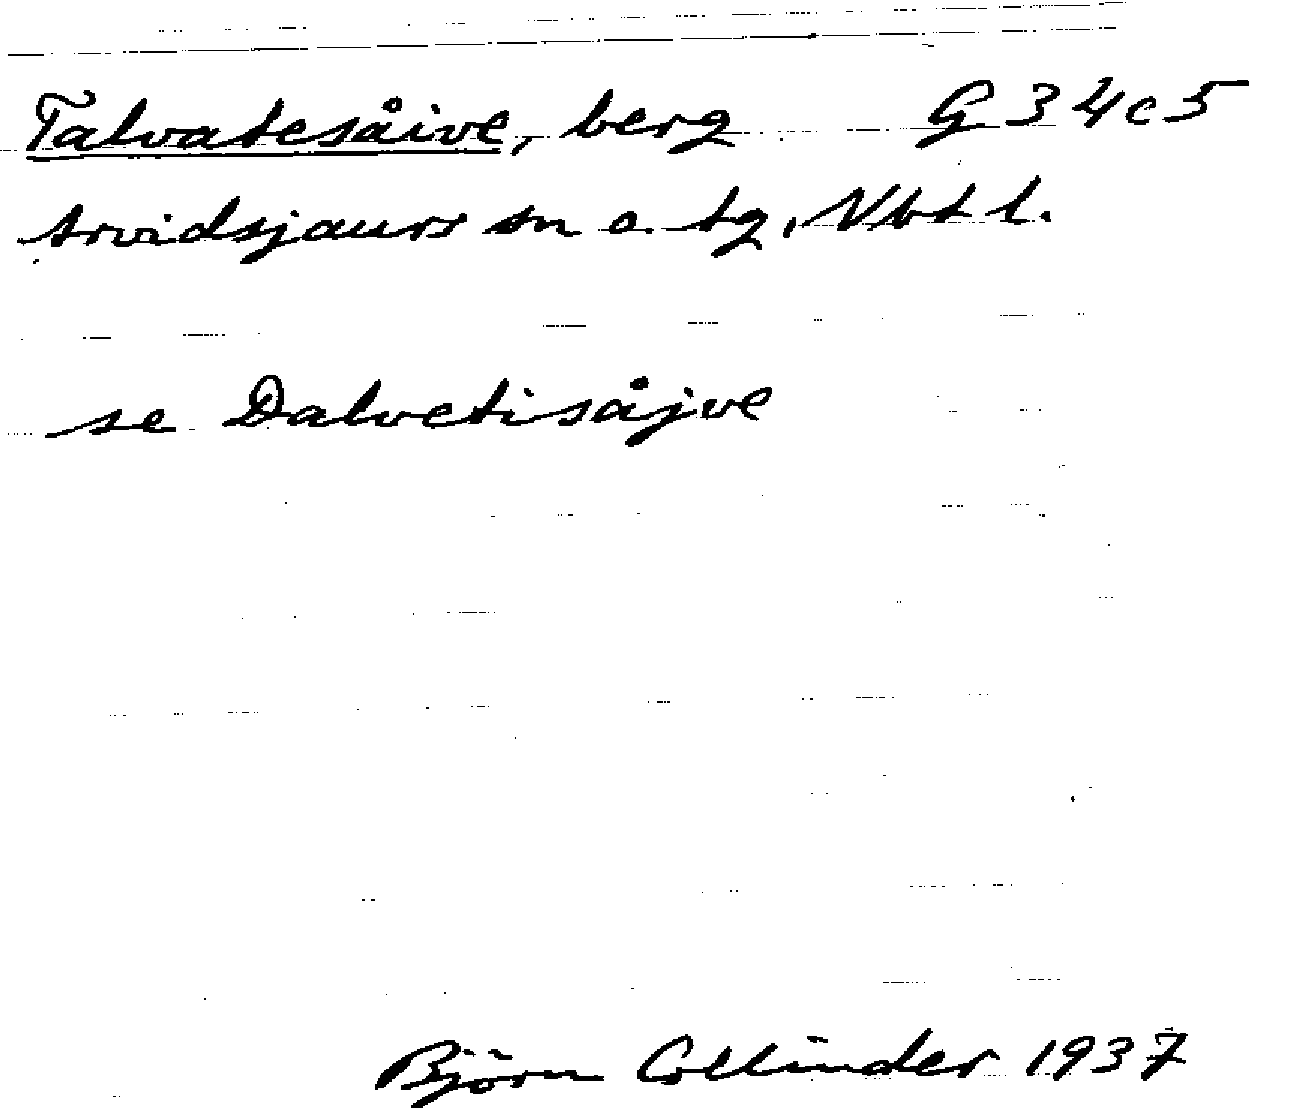 Talvatesåive, berg G 34c5
Arvidsjaurs sn o. tg, Nbt l.
se Dalvetisåjve
Björn Collinder 1937